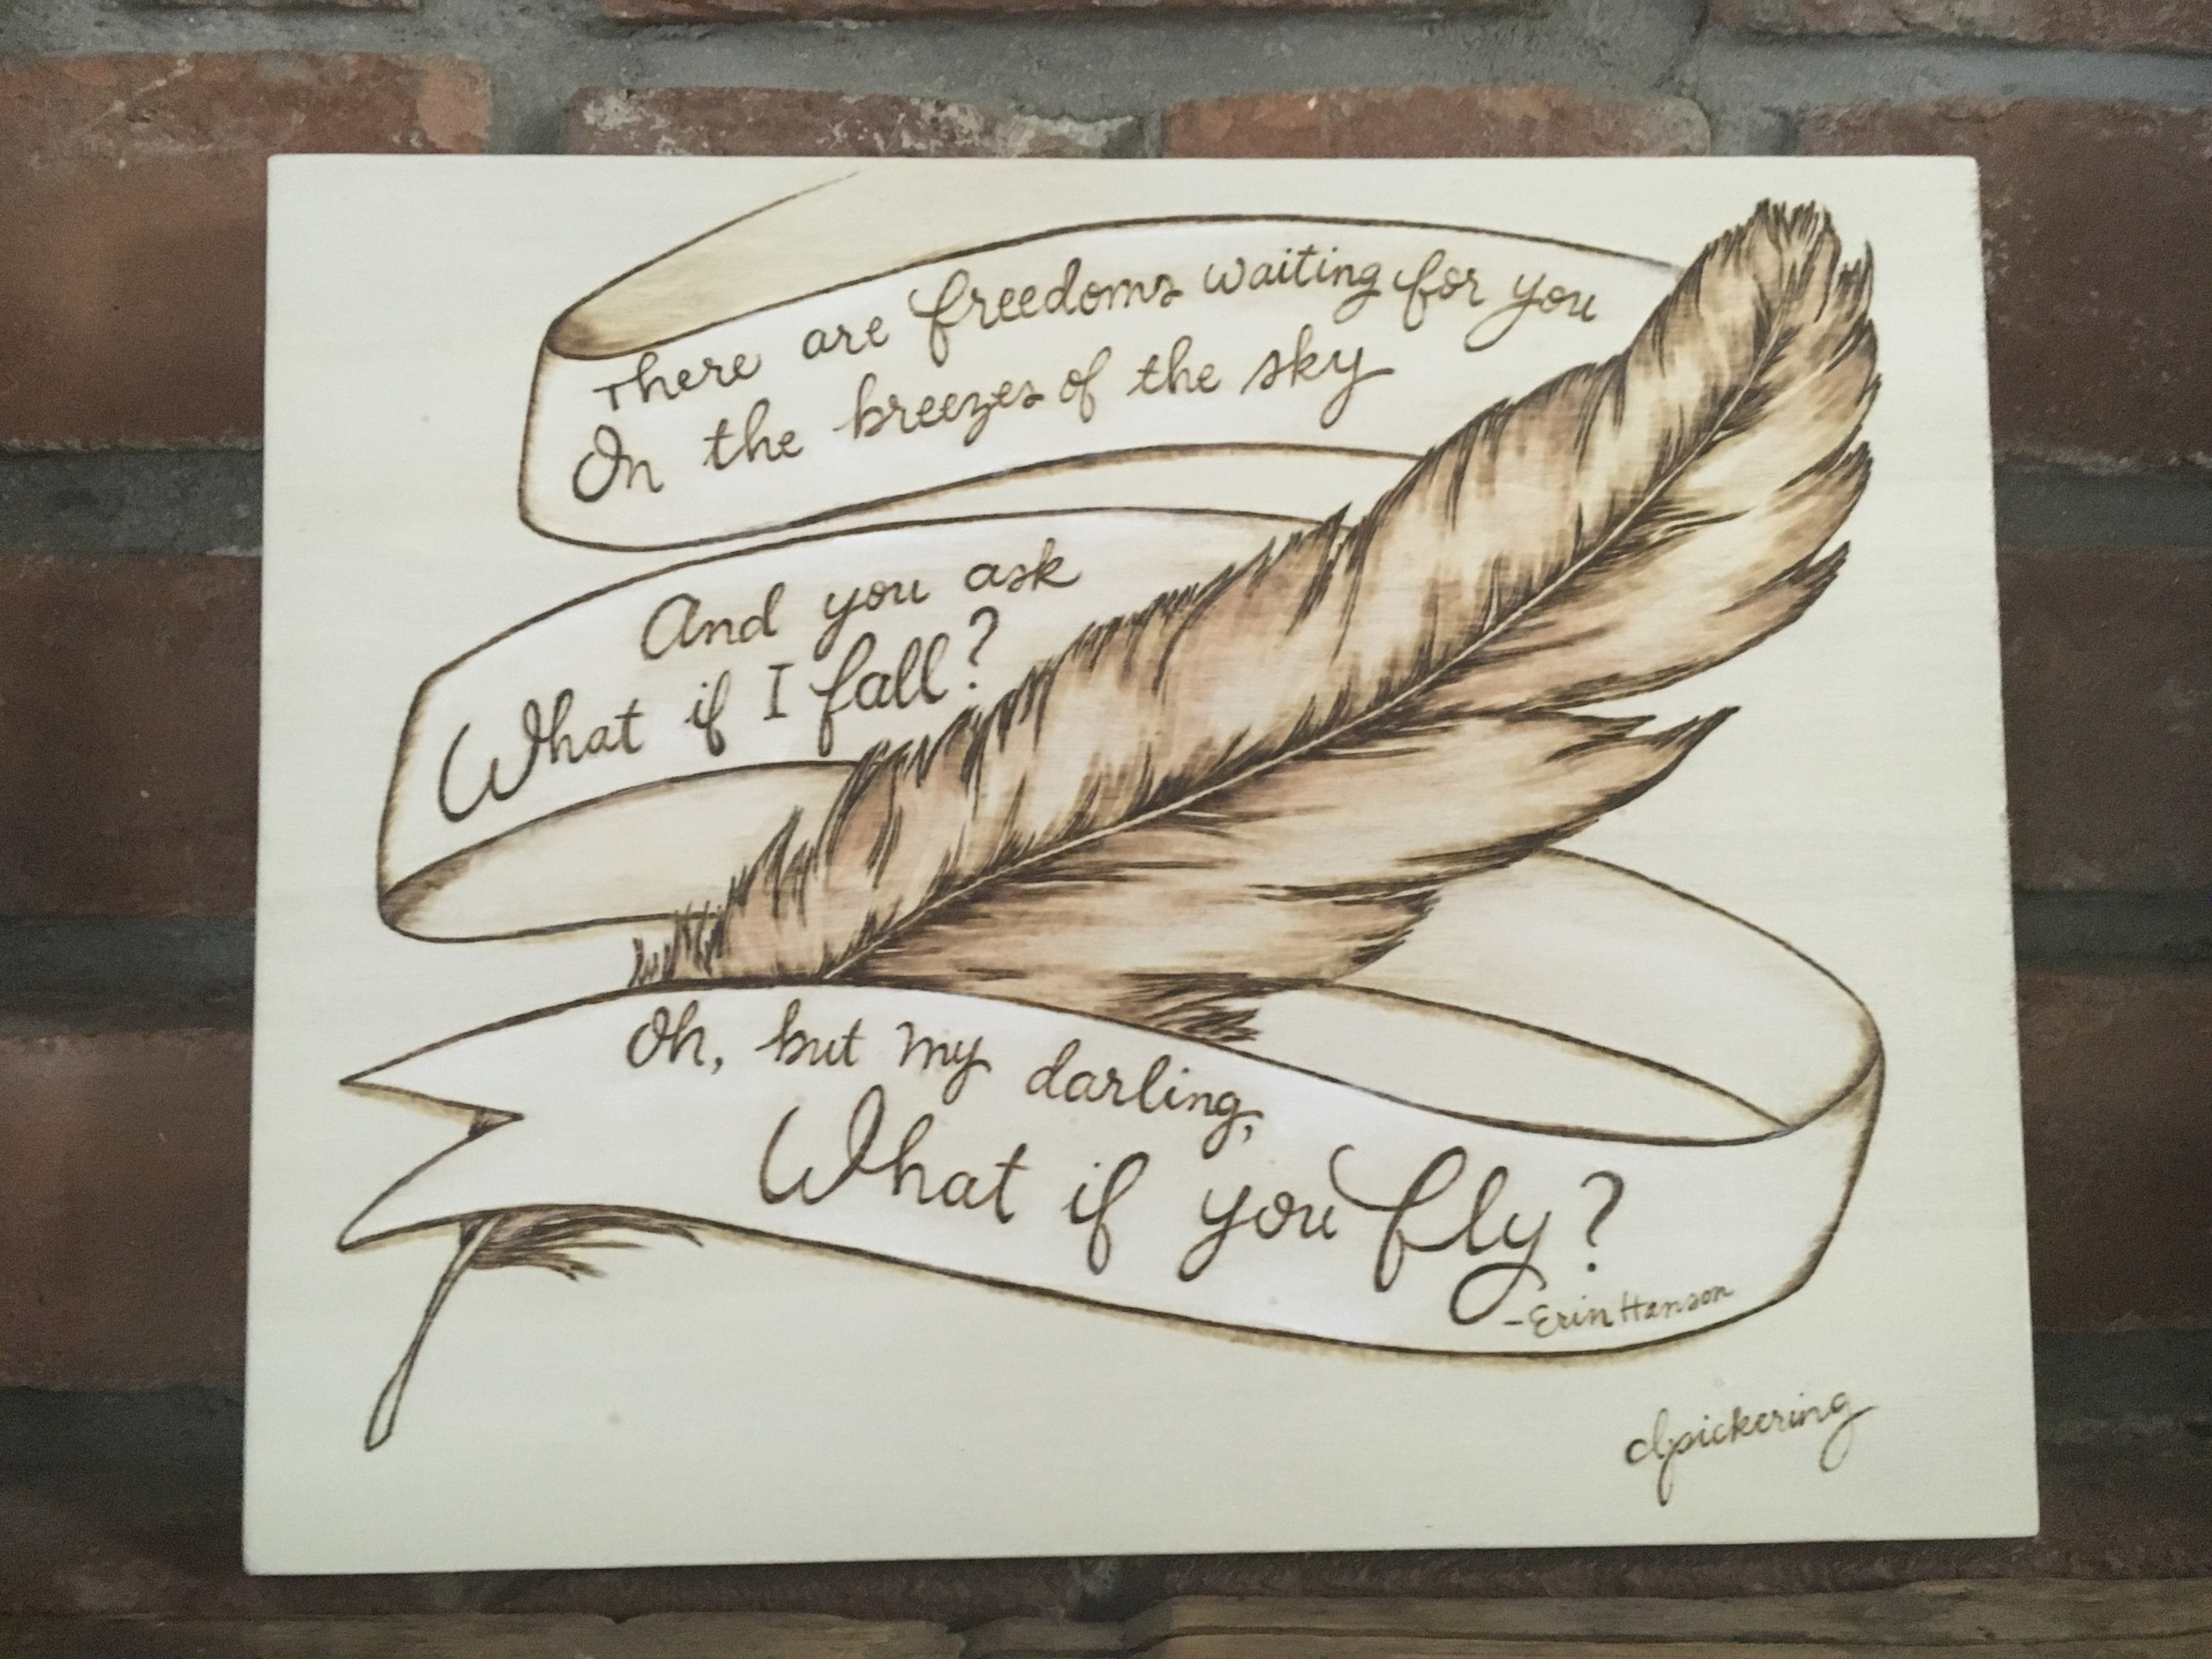 There are freedoms waiting for you
On the breezes of the sky
And you ask
What if I fall?
Oh, but my darling,
What if you fly?
-Erin Hanson
dpickering